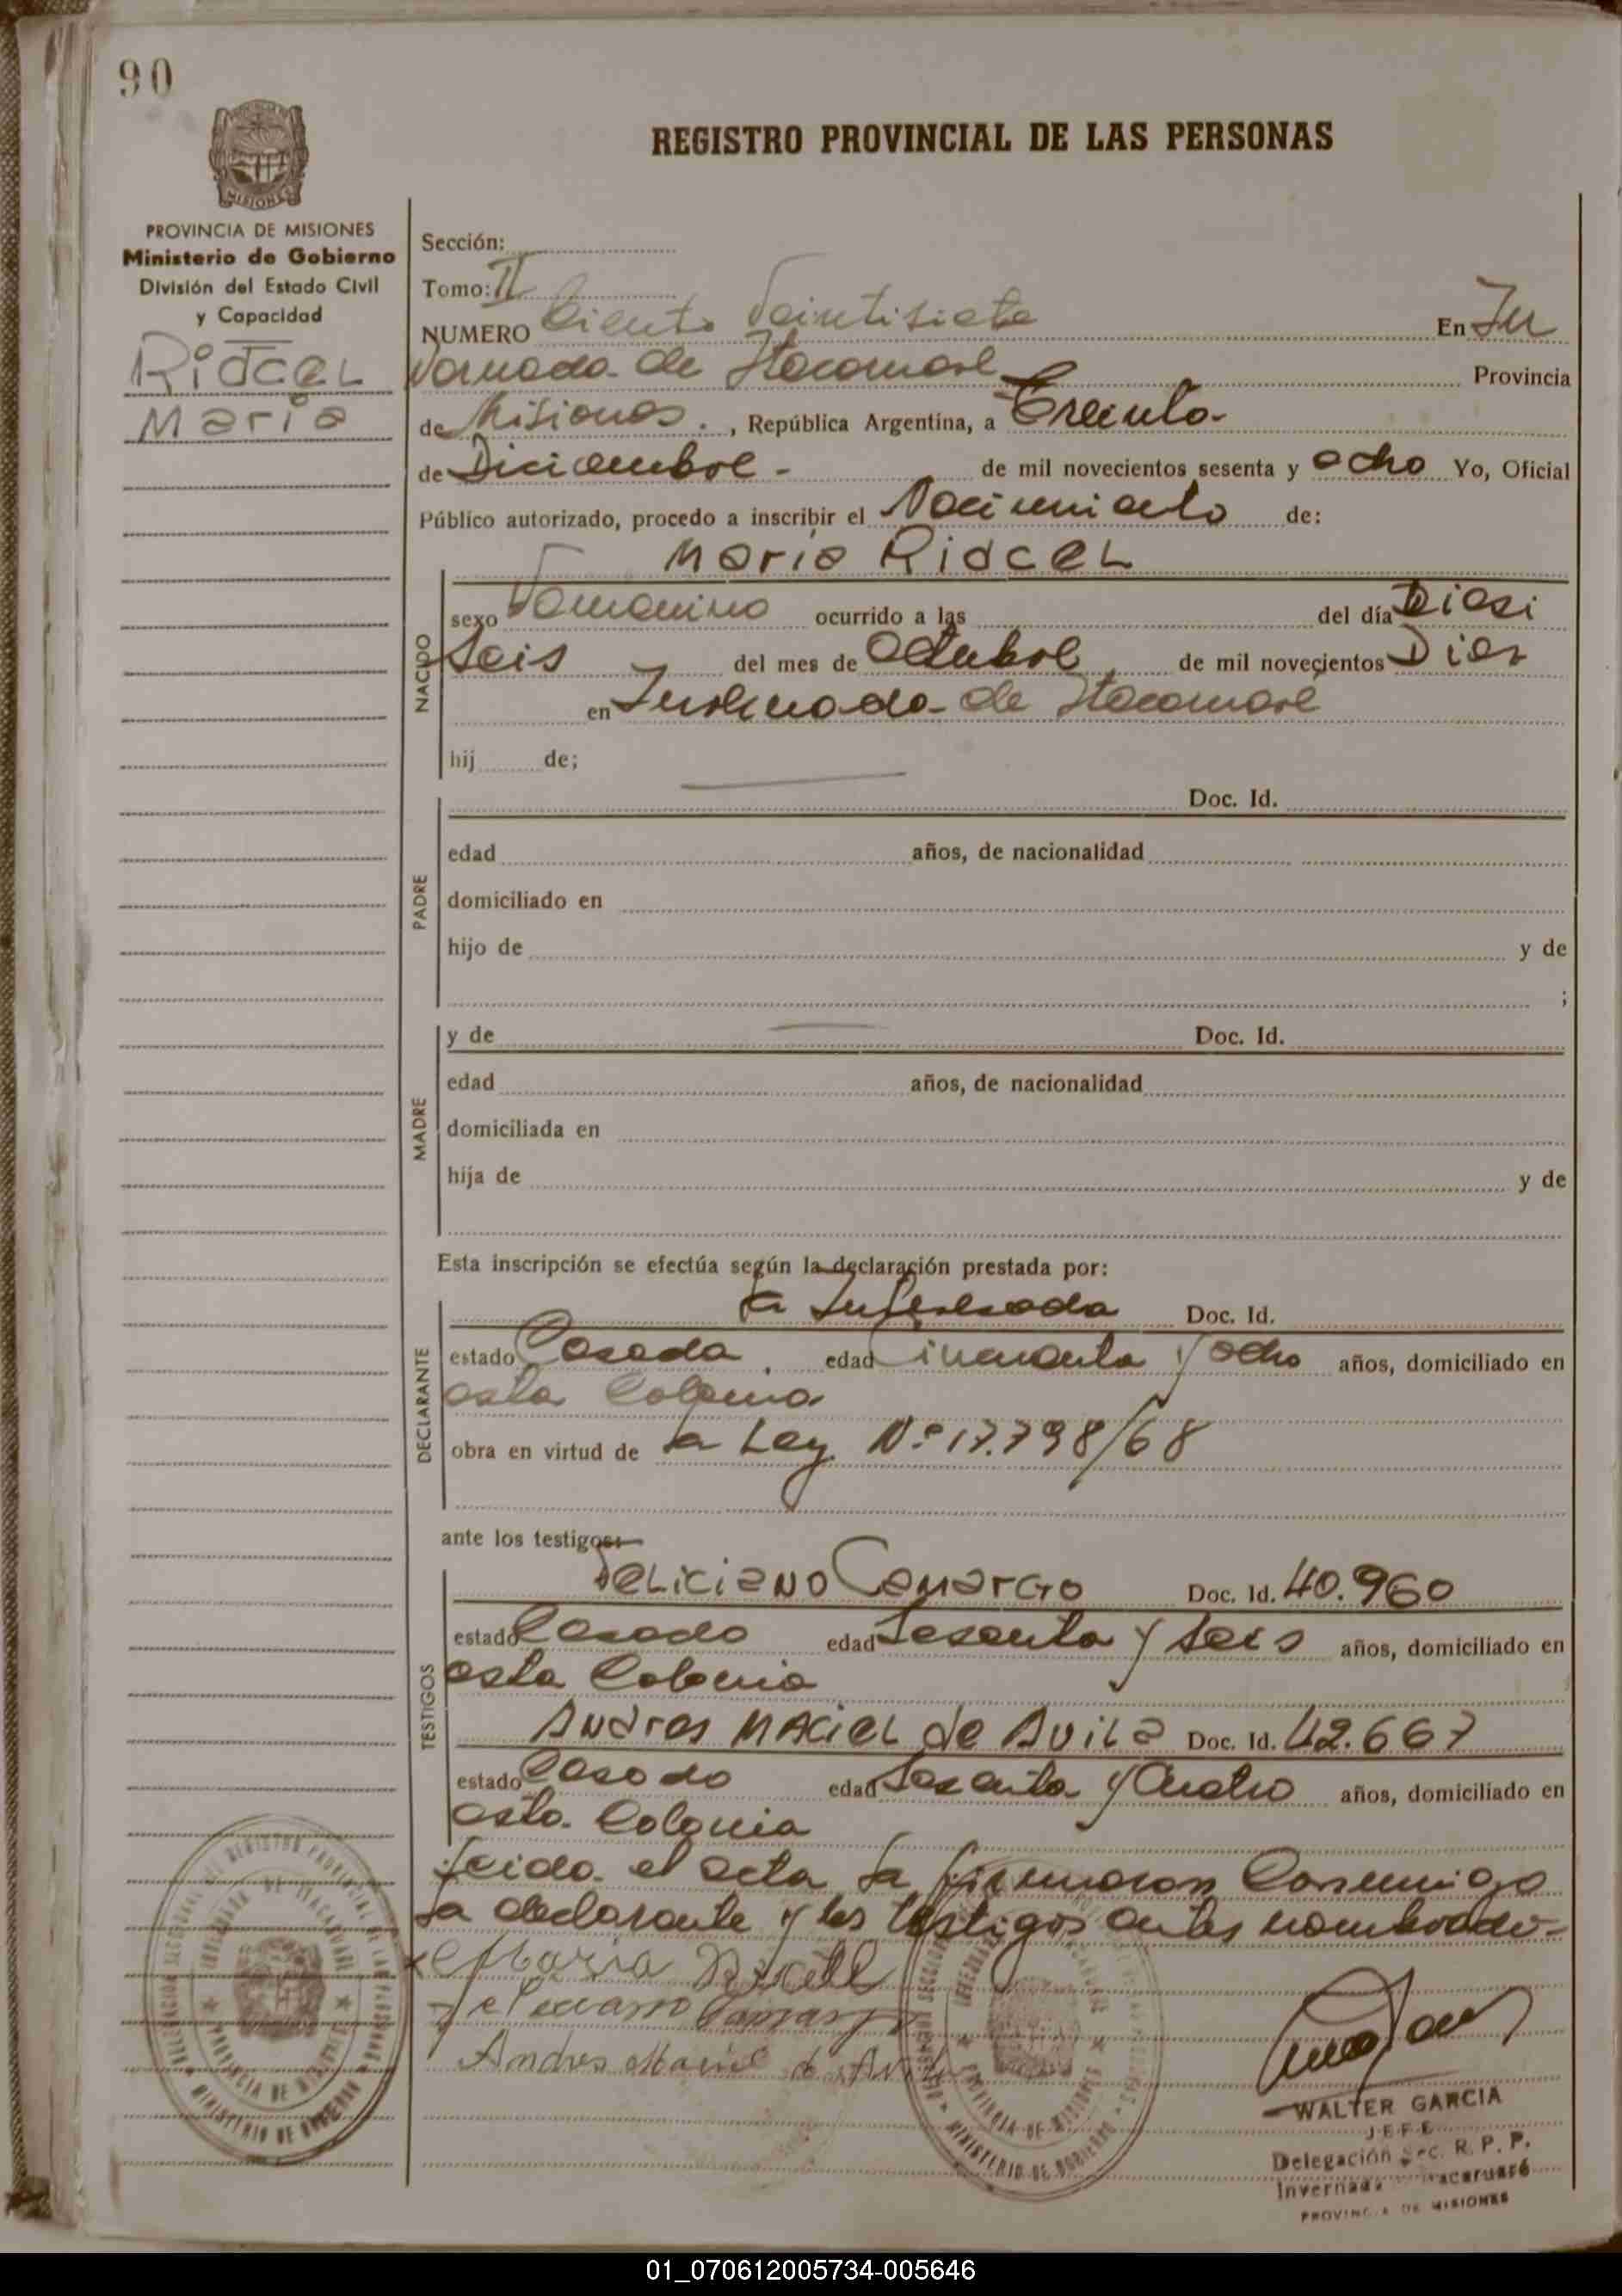 90
REGISTRO PROVINCIAL DE LAS PERSONAS
MISIONES
PROVINCIA DE MISIONES
Ministerio de Gobierno
División del Estado Civil
y Capacidad
Ridcel
Maria
Sección:
Tomo: II
NUMERO Ciento Veintisiete En In
vernada de Itacaruare Provincia
de Misiones., República Argentina, a Treinta-
de Diciembre - de mil novecientos sesenta y ocho Yo, Oficial
Público autorizado, procedo a inscribir el Nacimiento de:
Maria Ridcel
NACIDO
sexo Femenino ocurrido a las del día Dieci
seis del mes de Octubre de mil novecientos Diez
en Invernada de Itacaruare
hij de;
PADRE
Doc. Id.
edad años, de nacionalidad
domiciliado en
hijo de y de
;
MADRE
y de Doc. Id.
edad años, de nacionalidad
domiciliada en
hija de y de
Esta inscripción se efectúa según la declaración prestada por:
DECLARANTE
la Interesada Doc. Id.
estado Casada. edad Cincuenta y ocho años, domiciliado en
esta Colonia
obra en virtud de la Ley Nº 17.798/68
ante los testigos:
TESTIGOS
Feliciano Camargo Doc. Id. 40.960
estado Casado edad Sesenta y seis años, domiciliado en
esta Colonia
Andres Maciel de Avila Doc. Id. 42.667
estado Casado edad Sesenta y Cuatro años, domiciliado en
esta Colonia
Leida el acta la firmaron Conmigo
la declarante y los testigos antes nombrado-
Maria
Feliciano Camargo
Andres Maciel de Avila
WALTER GARCIA
JEFE
Delegación Sec. R. P. P.
Invernada Itacaruaré
PROVINCIA DE MISIONES
MINISTERIO DE GOBIERNO
PROVINCIA DE MISIONES
01_070612005734-005646